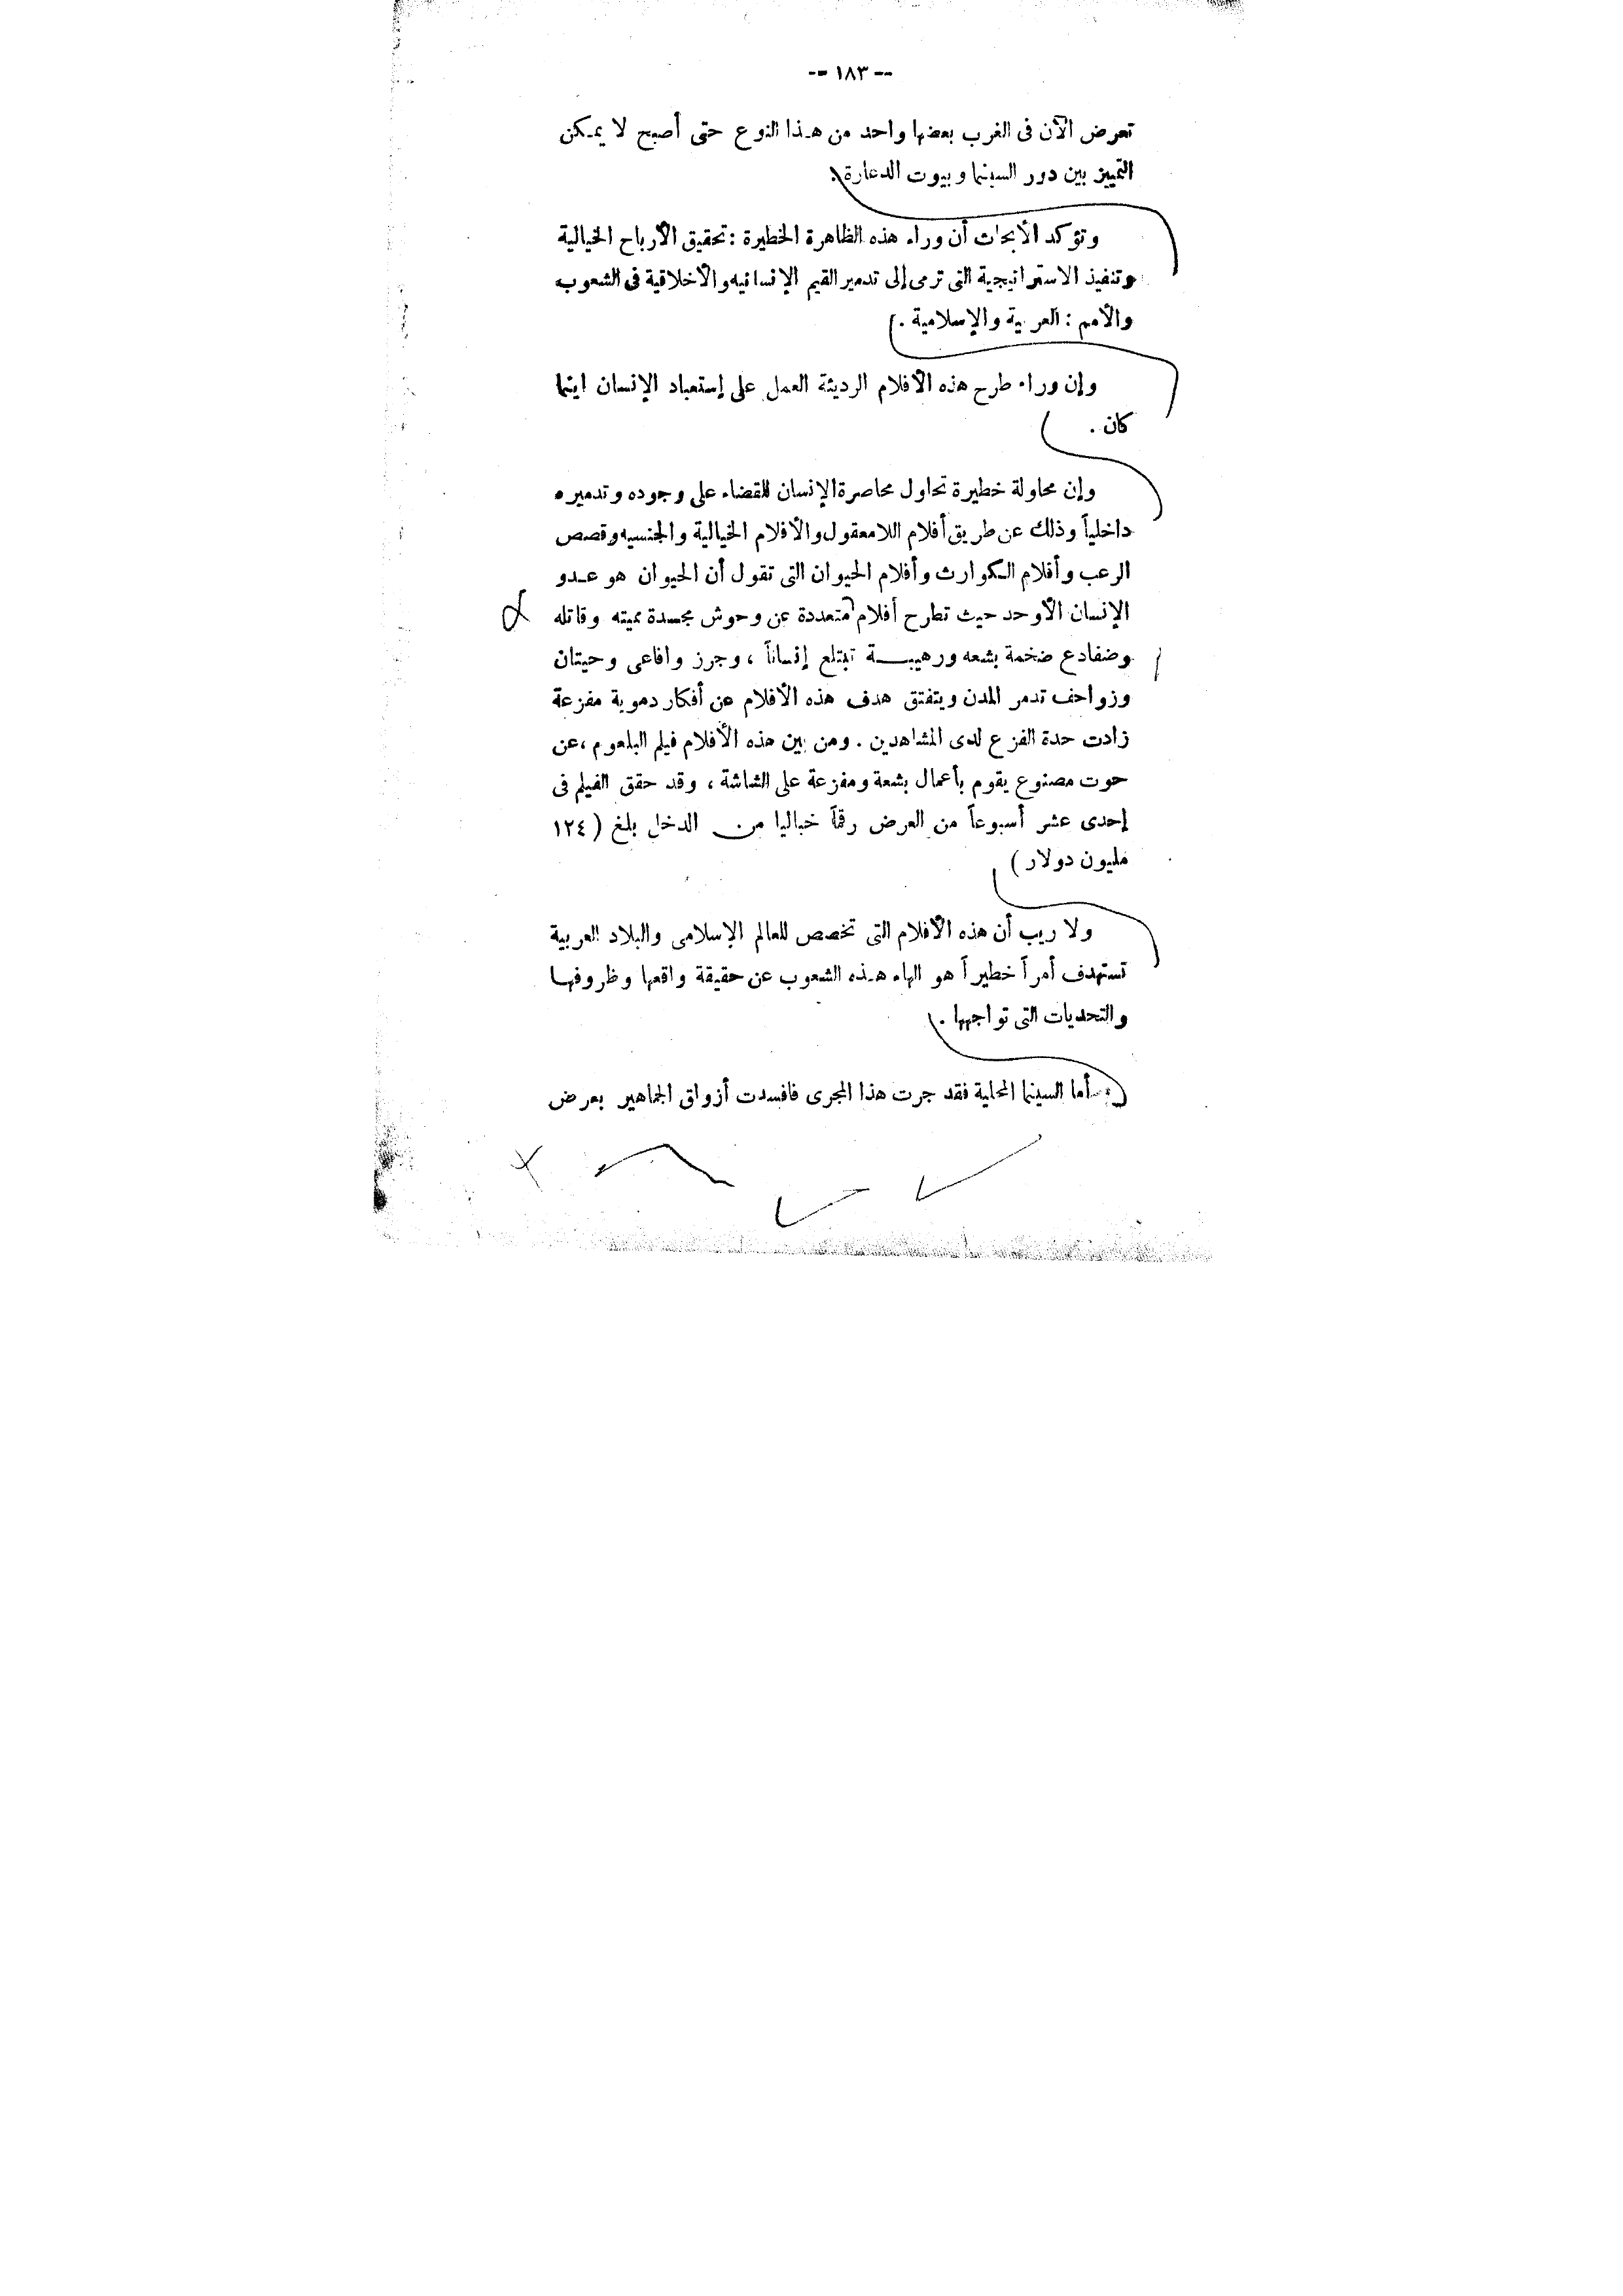 -- ١٨٣ --
تعرض الآن فى الغرب بعضها واحد من هذا النوع حتى أصبح لا يمكن
التمييز بين دور السينما وبيوت الدعارة.
وتؤكد الأبحاث أن وراء هذه الظاهرة الخطيرة : تحقيق الأرباح الخيالية
وتنفيذ الاستراتيجية التى ترمى إلى تدمير القيم الإنسانيه والأخلاقية فى الشعوب
والأمم : العربية والإسلامية .
وإن وراء طرح هذه الأفلام الرديئة العمل على إستعباد الإنسان اينما
كان .
وإن محاولة خطيرة تحاول محاصرة الإنسان للقضاء على وجوده وتدميره
داخلياً وذلك عن طريق أفلام اللامعقول والأفلام الخيالية والجنسيه وقصص
الرعب وأفلام الكوارث وأفلام الحيوان التى تقول أن الحيوان هو عدو
الإنسان الأوحد حيث تطرح أفلام متعددة عن وحوش مجسدة مميته وقاتله
وضفادع ضخمة بشعه ورهيبــة تبتلع إنساناً ، وجرز وافاعى وحيتان
وزواحف تدمر المدن ويتفتق هدف هذه الأفلام عن أفكار دموية مفزعة
زادت حدة الفزع لدى المشاهدين . ومن بين هذه الأفلام فيلم البلعوم ،عن
حوت مصنوع يقوم بأعمال بشعة ومفزعة على الشاشة ، وقد حقق الفيلم فى
إحدى عشر أسبوعاً من العرض رقماً خياليا من الدخل بلغ ( ١٢٤
مليون دولار )
ولا ريب أن هذه الأفلام التى تخصص للعالم الإسلامى والبلاد العربية
تستهدف أمراً خطيراً هو الهاء هذه الشعوب عن حقيقة واقعها وظروفها
والتحديات التى تواجهها .
أما السينما المحلية فقد جرت هذا المجرى فافسدت أزواق الجماهير بعرض